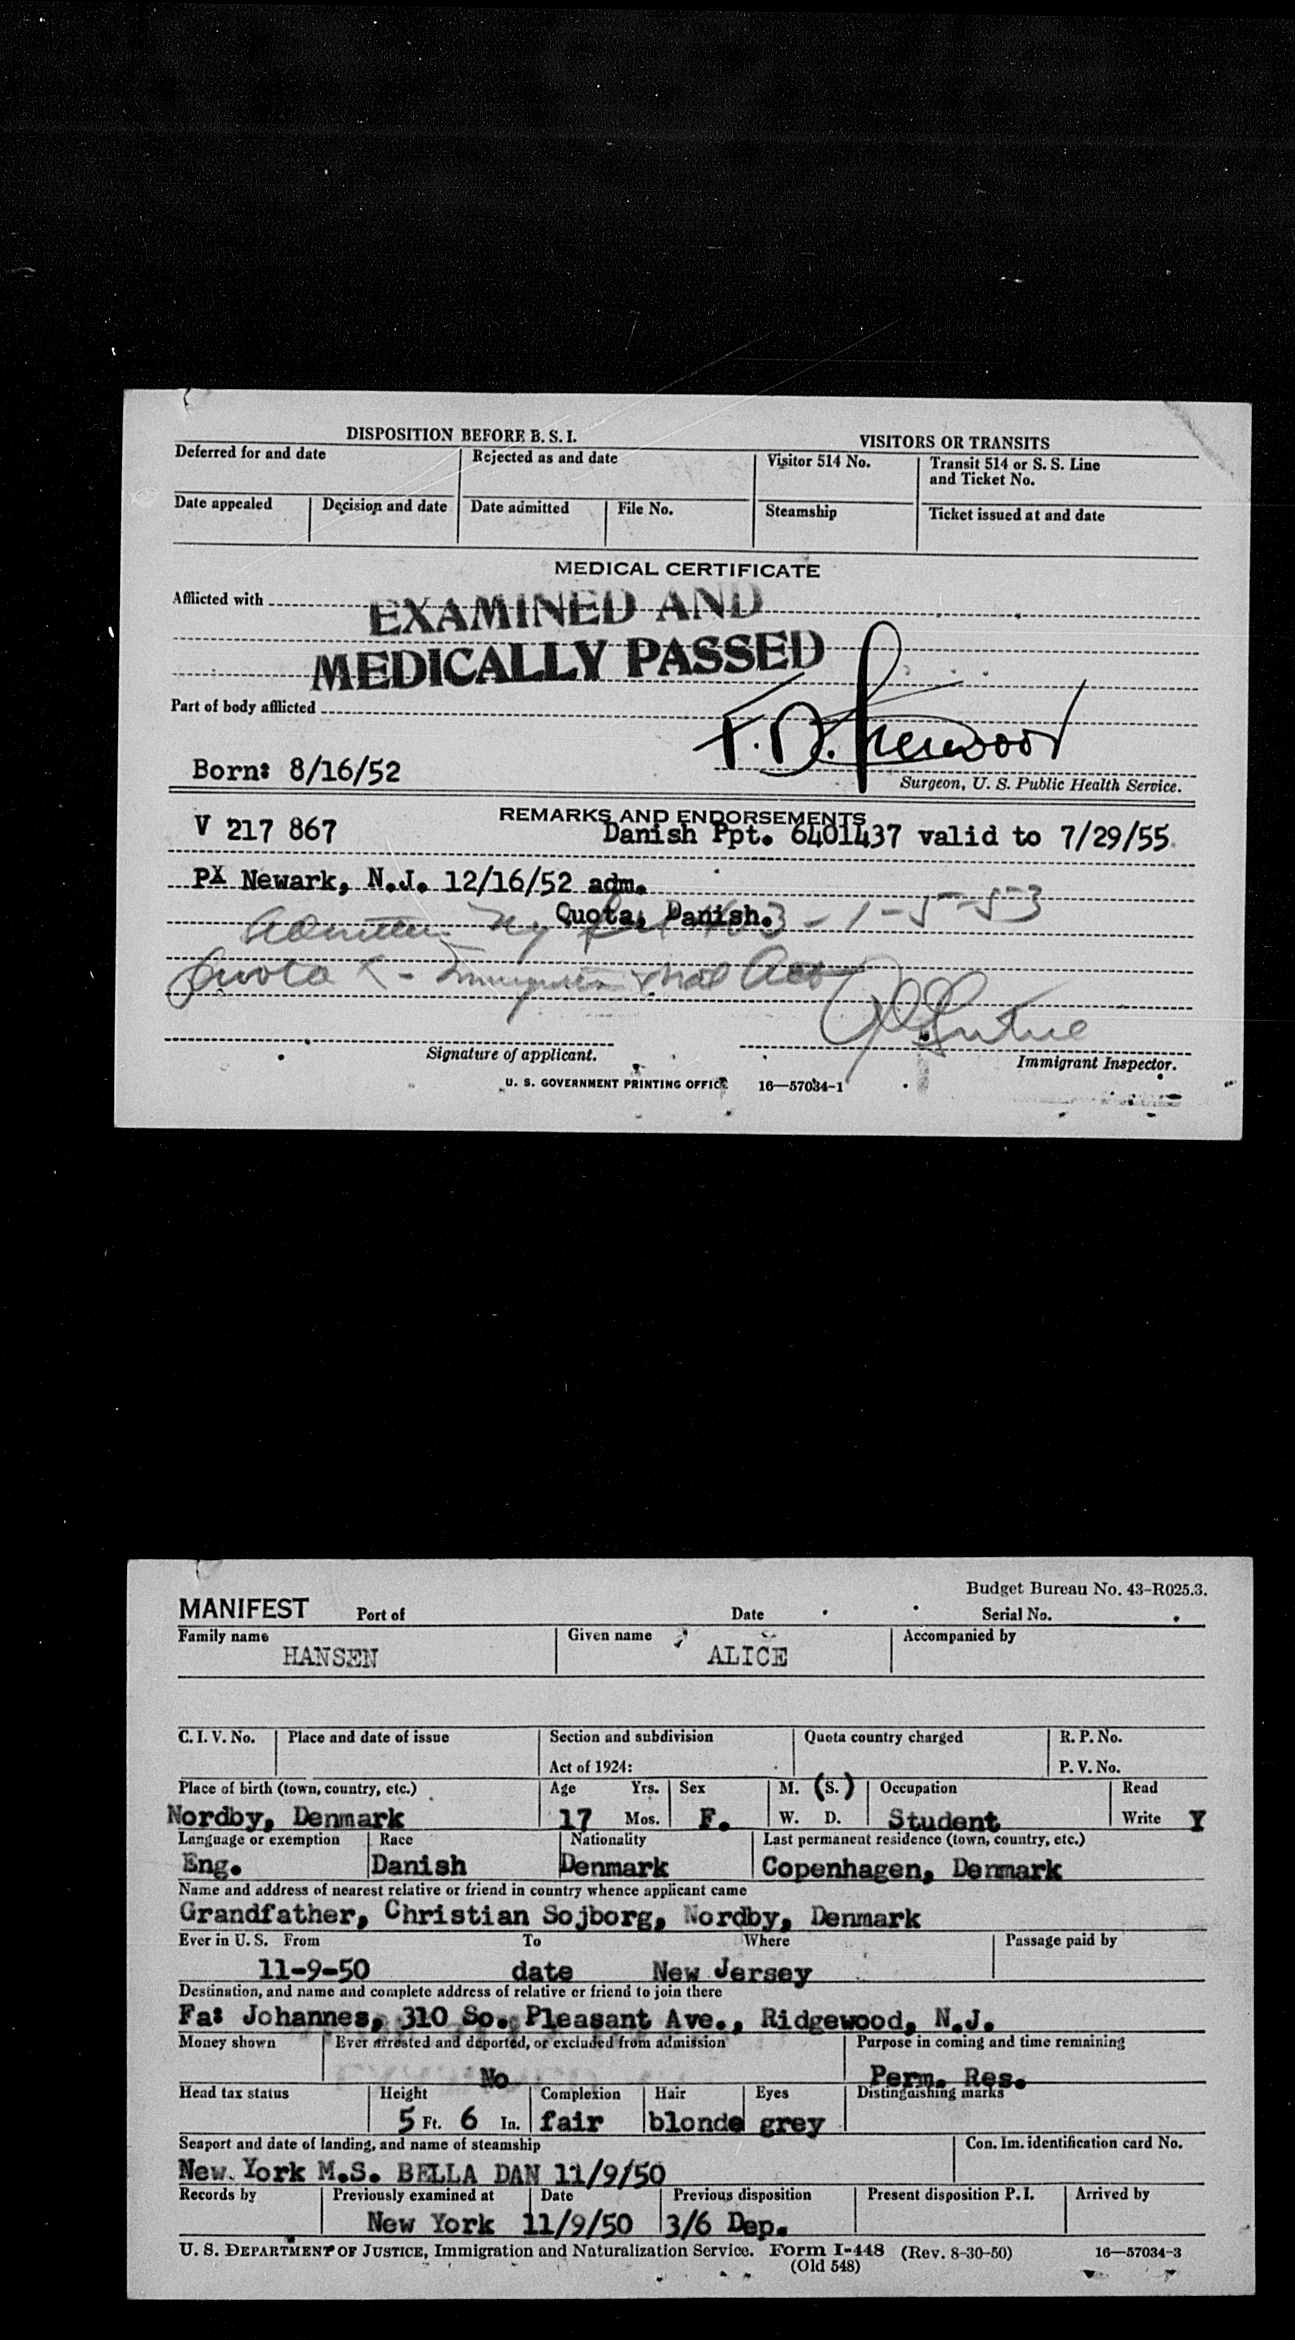 DISPOSITION BEFORE B. S. I.
VISITORS OR TRANSITS
Deferred for and date
Rejected as and date
Visitor 514 No.
Transit 514 or S. S. Line and Ticket No.
Date appealed
Decision and date
Date admitted
File No.
Steamship
Ticket issued at and date
MEDICAL CERTIFICATE
Afflicted with
EXAMINED AND
MEDICALLY PASSED
Part of body afflicted
Born: 8/16/52
Surgeon, U. S. Public Health Service.
REMARKS AND ENDORSEMENTS
V 217 867
Danish Ppt. 6401437 valid to 7/29/55
PX Newark, N.J. 12/16/52 adm.
Quota, Danish.
1-5-53
Quota
Signature of applicant.
Immigrant Inspector.
U. S. GOVERNMENT PRINTING OFFICE 16—57034-1
Budget Bureau No. 43-R025.3.
MANIFEST Port of Date Serial No.
Family name
Given name
Accompanied by
HANSEN ALICE
C. I. V. No.
Place and date of issue
Section and subdivision
Quota country charged
R. P. No.
Act of 1924:
P. V. No.
Place of birth (town, country, etc.)
Age Yrs.
Sex
M. (S.)
Occupation
Read
Nordby, Denmark
17 Mos.
F.
W. D.
Student
Write Y
Language or exemption
Race
Nationality
Last permanent residence (town, country, etc.)
Eng. Danish Denmark Copenhagen, Denmark
Name and address of nearest relative or friend in country whence applicant came
Grandfather, Christian Sojborg, Nordby, Denmark
Ever in U. S. From To Where
Passage paid by
11-9-50 date New Jersey
Destination, and name and complete address of relative or friend to join there
Fa: Johannes, 310 So. Pleasant Ave., Ridgewood, N.J.
Money shown
Ever arrested and deported, or excluded from admission
Purpose in coming and time remaining
No Perm. Res.
Head tax status
Height
Complexion
Hair
Eyes
Distinguishing marks
5 Ft. 6 In. fair blonde grey
Seaport and date of landing, and name of steamship
Con. Im. identification card No.
New York M.S. BELLA DAN 11/9/50
Records by
Previously examined at
Date
Previous disposition
Present disposition P. I.
Arrived by
New York 11/9/50 3/6 Dep.
U. S. DEPARTMENT OF JUSTICE, Immigration and Naturalization Service. Form I-448 (Rev. 8-30-50) 16—57034-3
(Old 548)